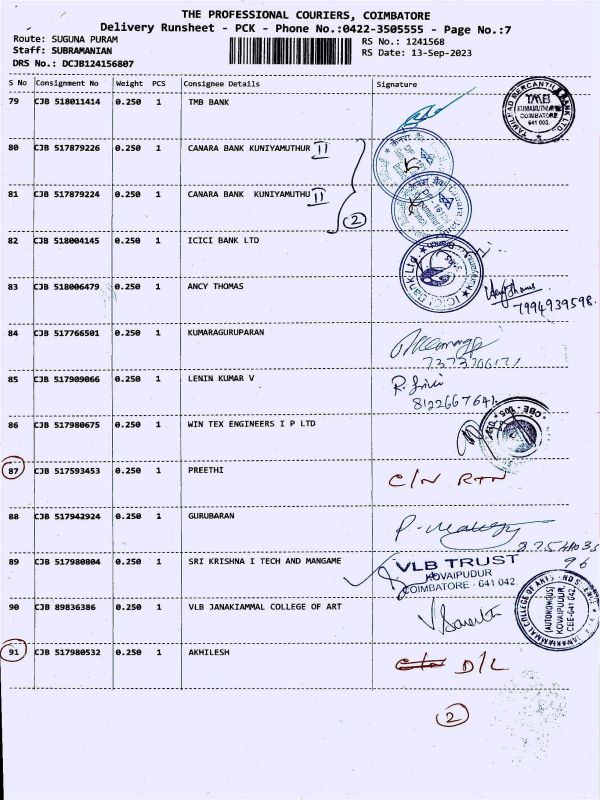 THE PROFESSIONAL COURIERS, COIMBATORE
Delivery Runsheet - PCK - Phone No.:0422-3505555 - Page No.:7
Route: SUGUNA PURAM
RS No.: 1241568
Staff: SUBRAMANIAN
RS Date: 13-Sep-2023
DRS No.: DCJB124156807
S No Consignment No Weight PCS Consignee Details Signature
79 CJB 518011414 0.250 1 TMB BANK
TAMILNAD MERCANTILE BANK LTD.
TMB
KUNIAMUTHUR
COIMBATORE
641 003.
80 CJB 517879226 0.250 1 CANARA BANK KUNIYAMUTHUR II
81 CJB 517879224 0.250 1 CANARA BANK KUNIYAMUTHU II
2
82 CJB 518004145 0.250 1 ICICI BANK LTD
ICICI Bank Ltd.
83 CJB 518006479 0.250 1 ANCY THOMAS
7994939598.
84 CJB 517766501 0.250 1 KUMARAGURUPARAN
85 CJB 517909066 0.250 1 LENIN KUMAR V
8122667641
86 CJB 517980675 0.250 1 WIN TEX ENGINEERS I P LTD
87 CJB 517593453 0.250 1 PREETHI C/N RTN
88 CJB 517942924 0.250 1 GURUBARAN
89 CJB 517980804 0.250 1 SRI KRISHNA I TECH AND MANGAME
VLB TRUST
KOVAIPUDUR
COIMBATORE - 641 042
90 CJB 89836386 0.250 1 VLB JANAKIAMMAL COLLEGE OF ART
(AUTONOMOUS)
KOVAIPUDUR,
CBE-641 042.
91 CJB 517980532 0.250 1 AKHILESH D/L
2